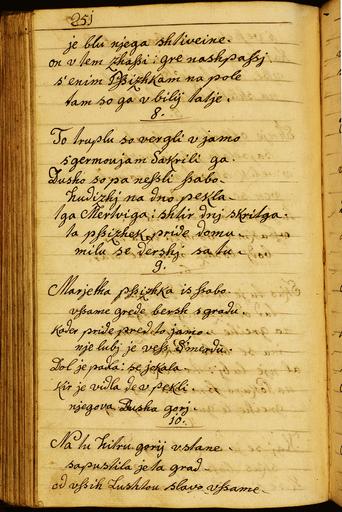 251
je blu njega shtiveine.
on v tem zhassi: gre nashpassj
s'enim Pssizhkam na pole
tam so ga vbilij tatje.
8.
To truplu so vergli v jamo
s'germoujam sakrili ga.
Dusho so pa nessli sabo
hudizhj na dno pekla.
tga Mertviga: shtir dnj skritga.
ta pssizhek pride domu
milu se dershj sa tu.
9.
Marjetka pssizhka is sabo
vsame grede bersh s'gradu.
Kader pride pred to jamo
nje lubj je vess Smerdu.
Dol je padla: se jokala.
Kir je vidla de v pekli
njegova Dusha gorj.
10.
Na tu hitru gorij vstane.
sapustila je ta grad.
od vssih Lushtou slavo vsame.